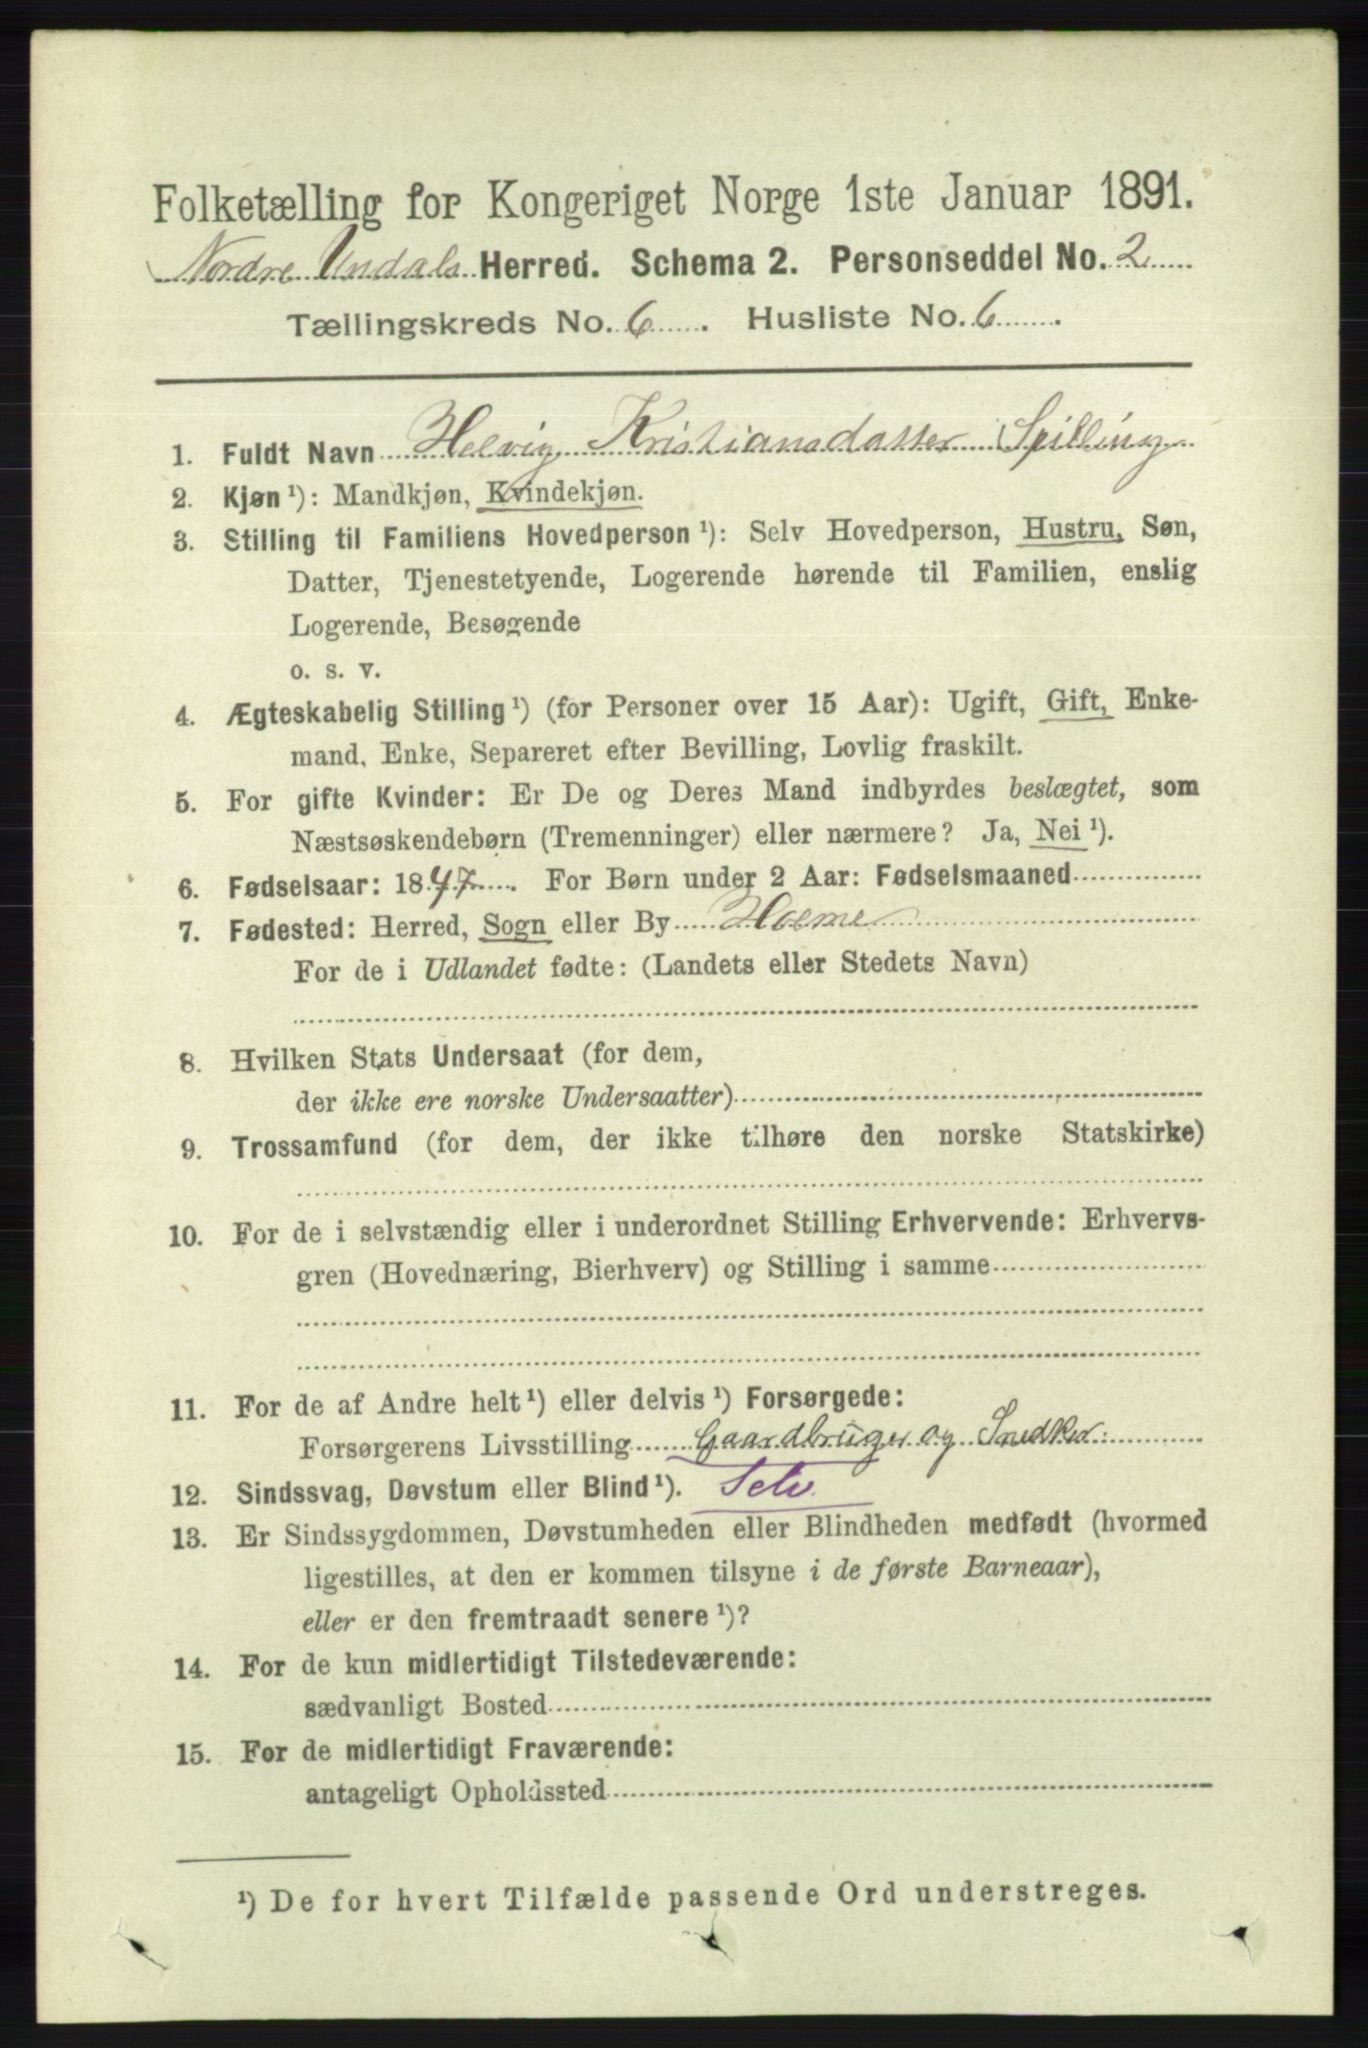 Folketælling for Kongeriget Norge 1ste Januar 1891.
Nordre Undals Herred. Schema 2. Personseddel No. 2
Tællingskreds No. 6. Husliste No. 6.
1. Fuldt Navn Helvig Kristiansdatter Spilling
2. Kjøn ¹): Mandkjøn, Kvindekjøn.
3. Stilling til Familiens Hovedperson ¹): Selv Hovedperson, Hustru, Søn,
Datter, Tjenestetyende, Logerende hørende til Familien, enslig
Logerende, Besøgende
o. s. v.
4. Ægteskabelig Stilling ¹) (for Personer over 15 Aar): Ugift, Gift, Enke-
mand, Enke, Separeret efter Bevilling, Lovlig fraskilt.
5. For gifte Kvinder: Er De og Deres Mand indbyrdes beslægtet, som
Næstsøskendebørn (Tremenninger) eller nærmere? Ja, Nei ¹).
6. Fødselsaar: 1847. For Børn under 2 Aar: Fødselsmaaned
7. Fødested: Herred, Sogn eller By Holme
For de i Udlandet fødte: (Landets eller Stedets Navn)
8. Hvilken Stats Undersaat (for dem,
der ikke ere norske Undersaatter)
9. Trossamfund (for dem, der ikke tilhøre den norske Statskirke)
10. For de i selvstændig eller i underordnet Stilling Erhvervende: Erhvervs-
gren (Hovednæring, Bierhverv) og Stilling i samme
11. For de af Andre helt ¹) eller delvis ¹) Forsørgede:
Forsørgerens Livsstilling Gaardbruger og Snedker
12. Sindssvag, Døvstum eller Blind ¹). Selv
13. Er Sindssygdommen, Døvstumheden eller Blindheden medfødt (hvormed
ligestilles, at den er kommen tilsyne i de første Barneaar),
eller er den fremtraadt senere ¹)?
14. For de kun midlertidigt Tilstedeværende:
sædvanligt Bosted
15. For de midlertidigt Fraværende:
antageligt Opholdssted
¹) De for hvert Tilfælde passende Ord understreges.